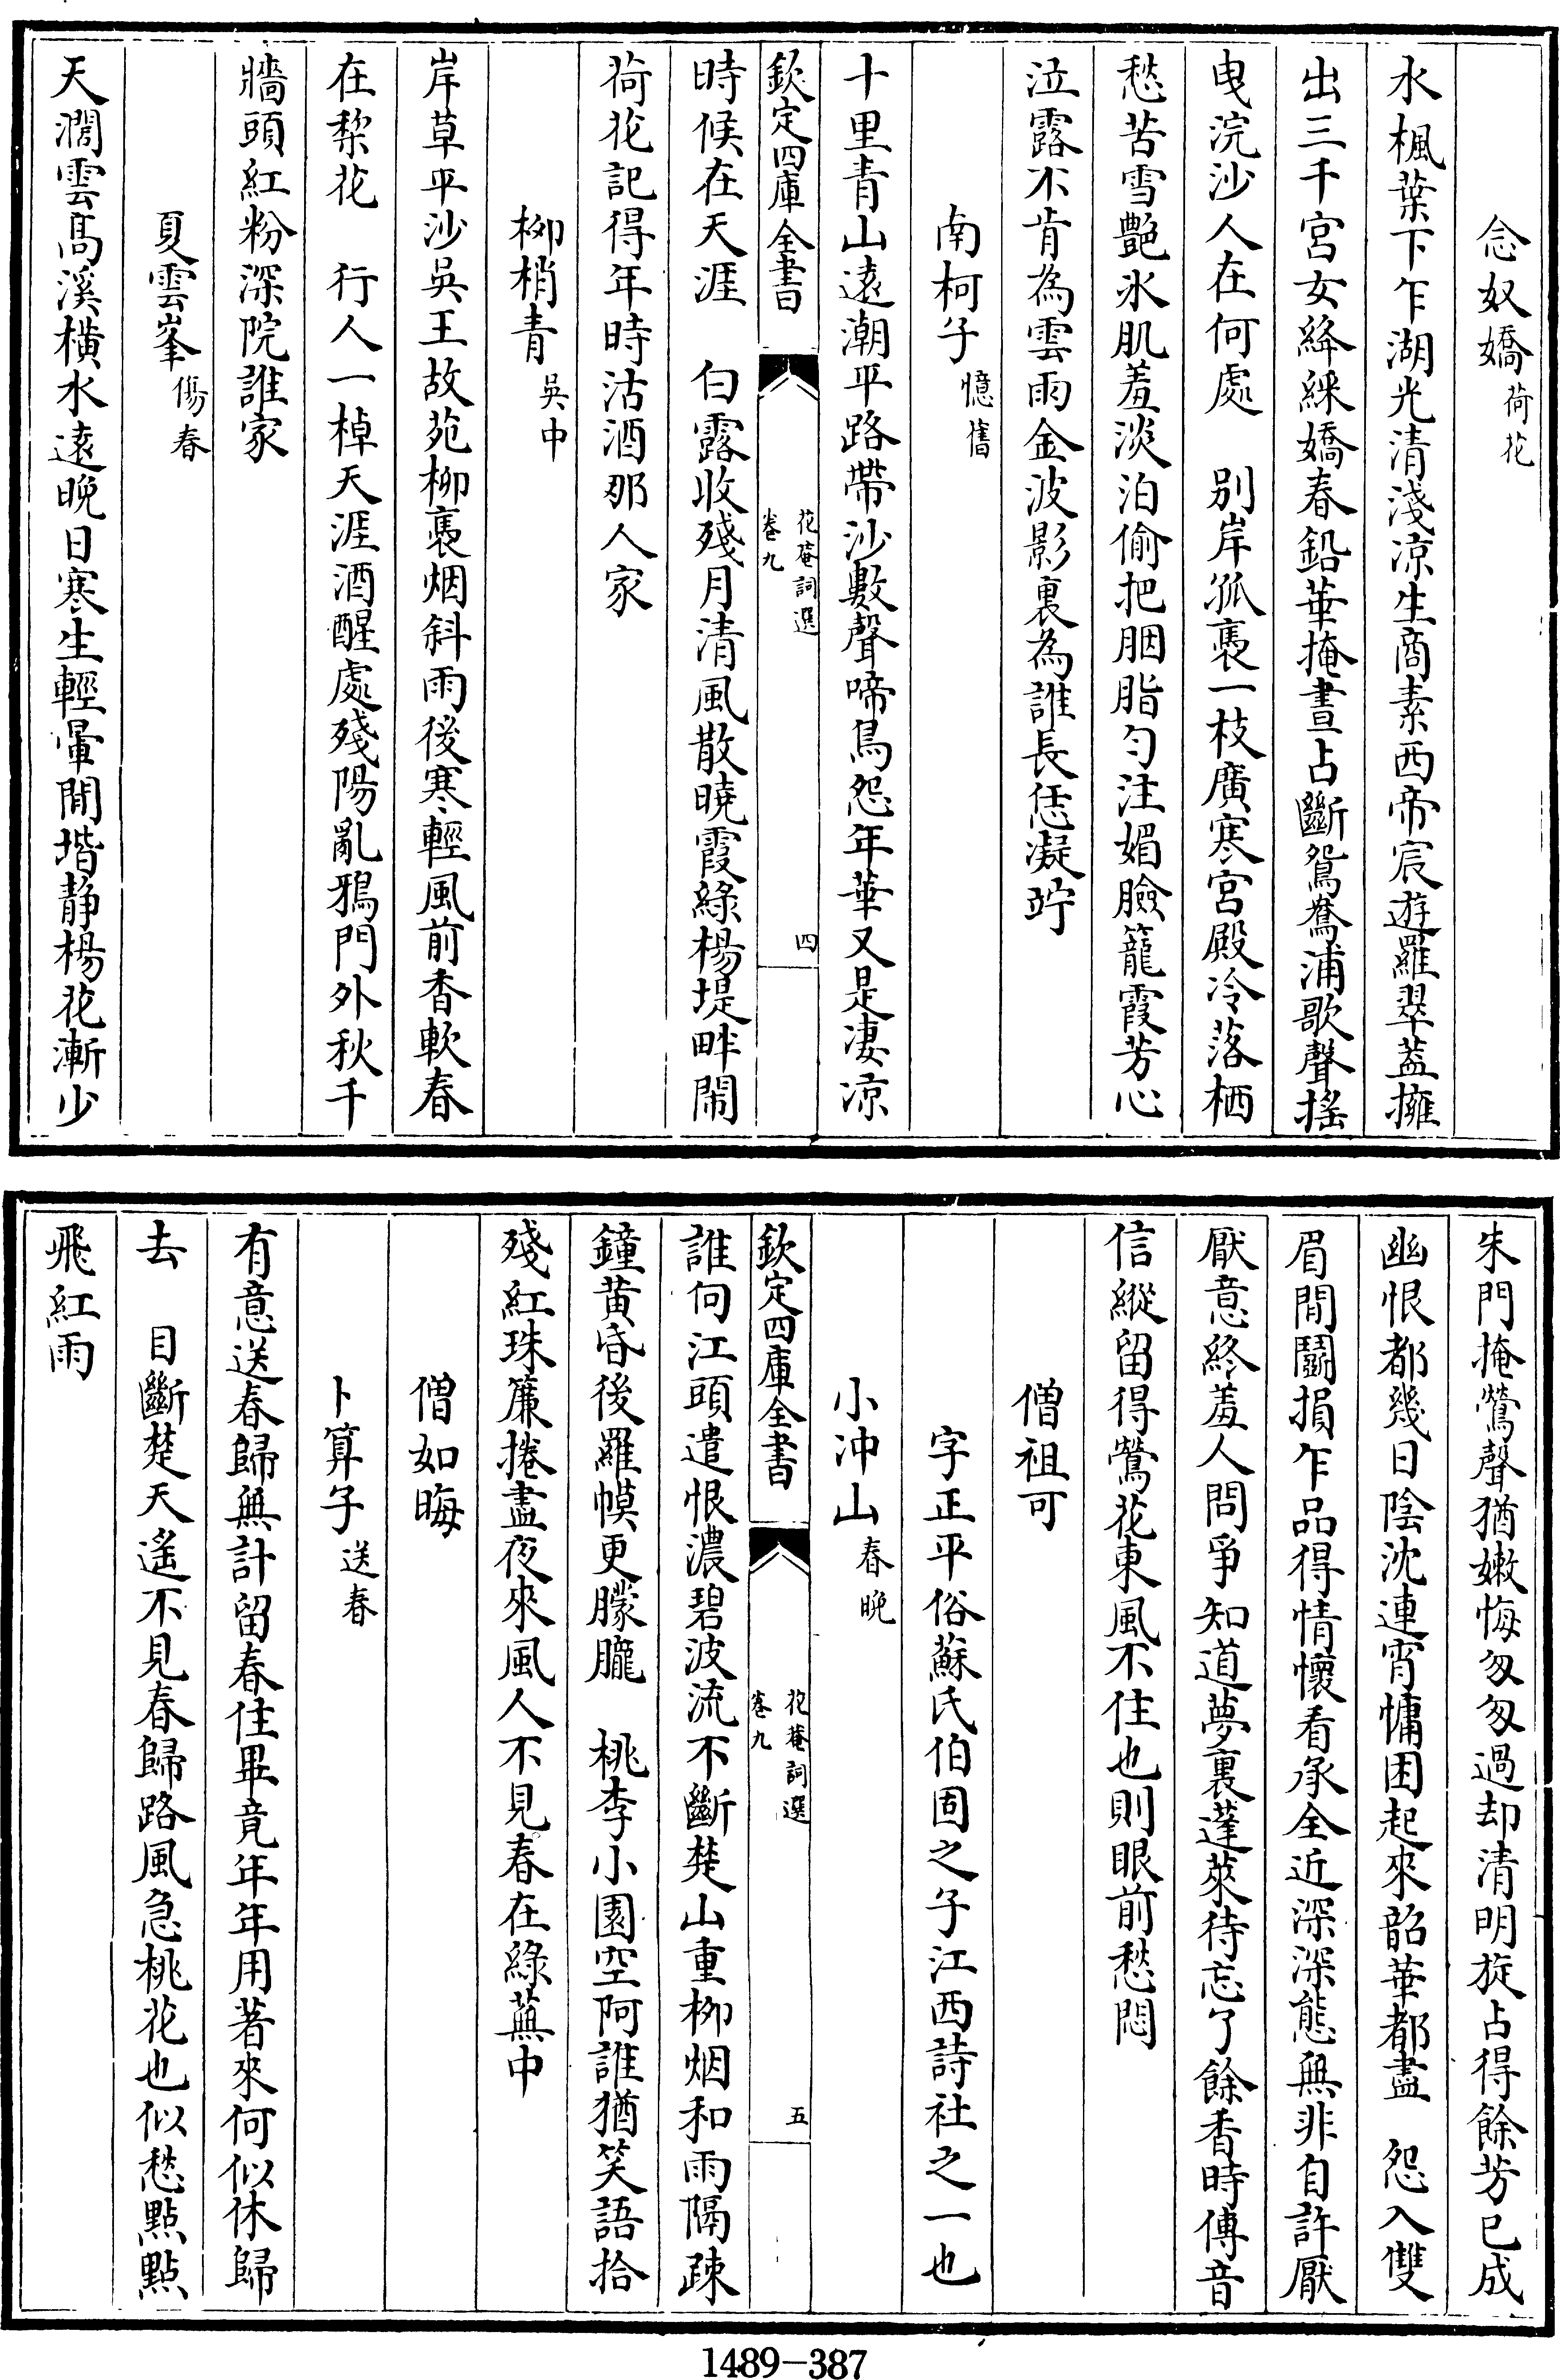 念奴嬌 荷花
水楓葉下乍湖光清淺凉生商素西帝宸遊羅翠葢擁
出三千宮女絳綵嬌春鉛華掩晝占斷鴛鴦浦歌聲搖
曳浣沙人在何處　別岸孤裊一枝廣寒宮殿冷落栖
愁苦雪艷氷肌羞淡泊偷把胭脂勻注媚臉籠霞芳心
泣露不肯為雲雨金波影裏為誰長恁凝竚
南柯子 憶舊
十里青山逺潮平路帶沙數聲啼鳥怨年華又是凄凉
欽定四庫全書　花菴詞選 卷九　四
時候在天涯　白露收殘月清風散曉霞綠楊堤畔閙
荷花記得年時沽酒那人家
柳梢青 吳中
岸草平沙吳王故苑柳裊烟斜雨後寒輕風前香軟春
在梨花　行人一棹天涯酒醒處殘陽亂鴉門外秋千
牆頭紅粉深院誰家
夏雲峯 傷春
天濶雲髙溪橫水逺晚日寒生輕暈閒堦静楊花漸少
朱門掩鶯聲猶嫩悔匆匆過却清明旋占得餘芳已成
幽恨都幾日陰沈連宵慵困起來韶華都盡　怨入雙
眉閒鬬損乍品得情懷看承全近深深態無非自許厭
厭意終羞人問爭知道夢裏蓬萊待忘了餘香時傳音
信縱留得鶯花東風不住也則眼前愁悶
僧祖可
字正平俗蘇氏伯固之子江西詩社之一也
小冲山 春晚
誰向江頭遣恨濃碧波流不斷楚山重柳烟和雨隔疎
鐘黃昏後羅幙更朦朧　桃李小園空阿誰猶笑語拾
殘紅珠簾捲盡夜來風人不見春在綠蕪中
欽定四庫全書　花菴詞選 卷九　五
僧如晦
卜算子 送春
有意送春歸無計留春住畢竟年年用著來何似休歸
去　目斷楚天遙不見春歸路風急桃花也似愁點點
飛紅雨
1489-387